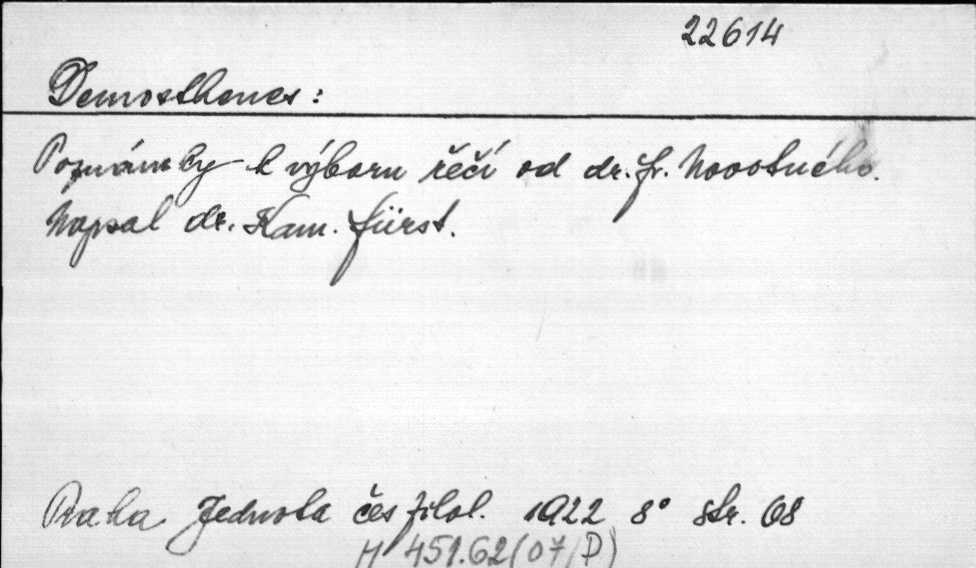 22614
Demosthenes:
Poznámky k výboru řečí od dr. Fr. Novotného.
Napsal dr. Kam. Fürst.
Praha Jednota čes filol. 1922 8° str. 68
H 451.62(07/D)